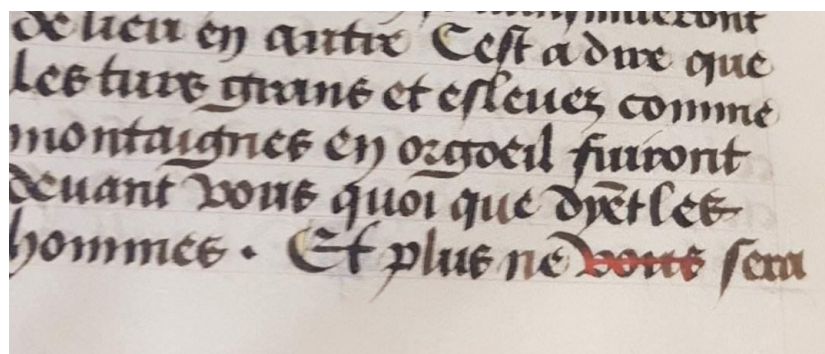 de lieu en autre Cest a dire que
Les turs grans et esleuez comme
montaignes en orgoeil fuiront
deuant vous quoi que dyēt les
hommes . Et plus ne vous sera